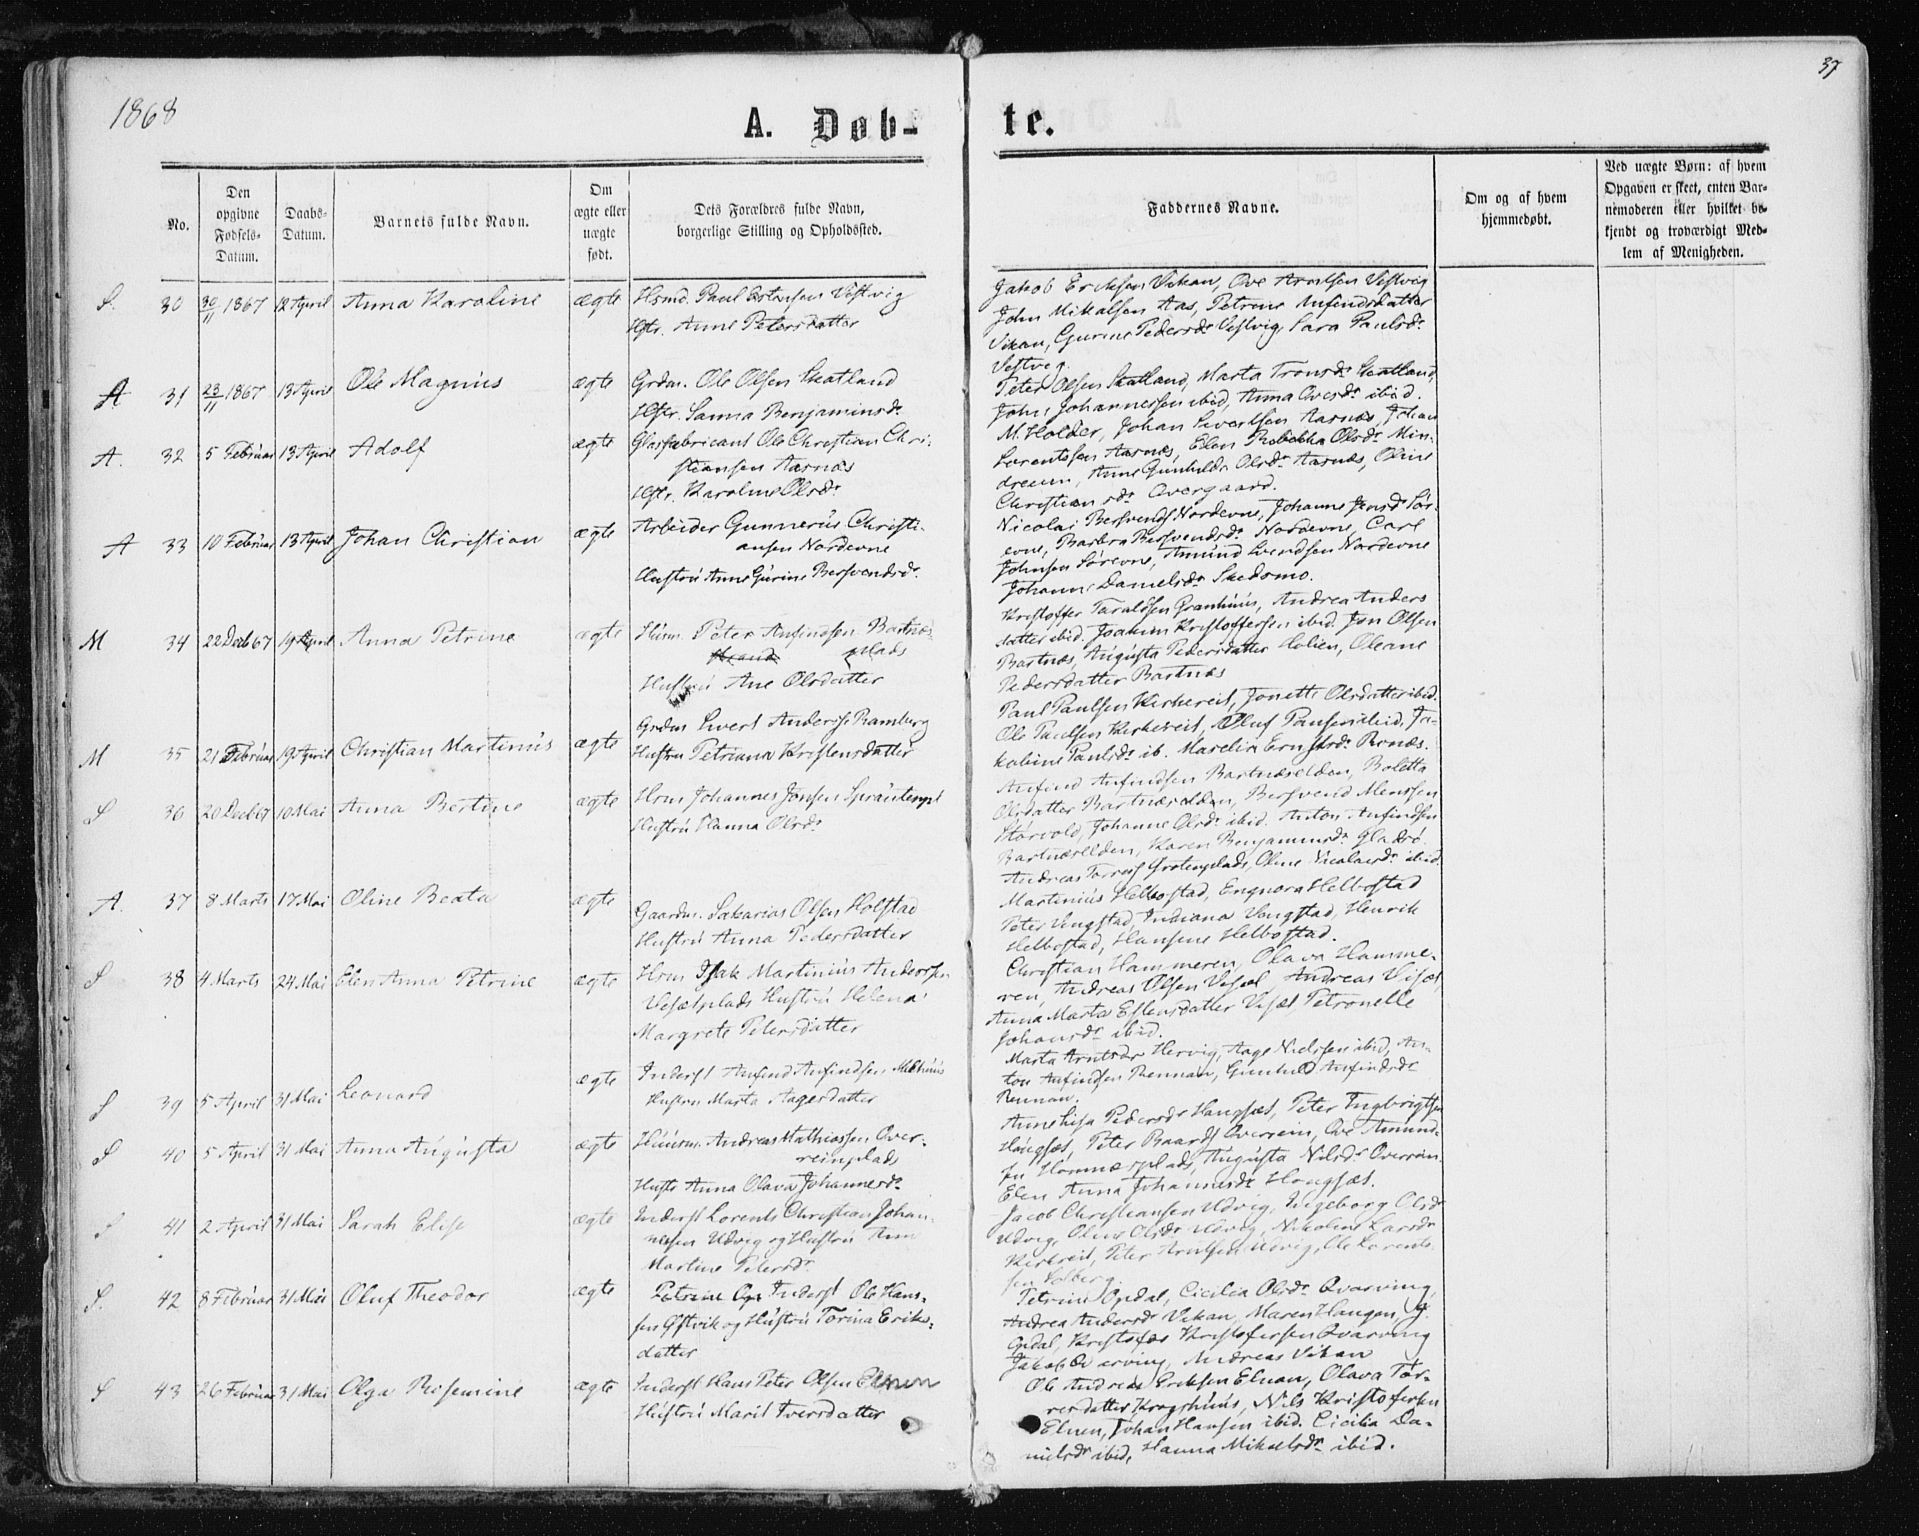 1868
37
A. Døb-
te.
No.
Den opgivne Fødsels-Datum.
Daabs-Datum.
Barnets fulde Navn.
Om ægte eller uægte født.
Dets Forældres fulde Navn,
borgerlige Stilling og Opholdssted.
Faddernes Navne.
Om og af hvem
hjemmedøbt.
Ved uægte Børn: af hvem
Opgaven er skeet, enten Bar-
nemoderen eller hvilket be-
kjendt og troværdigt Med-
lem af Menigheden.
S. 30 30/11 1867 12 April Anna Karoline ægte Hsmd. Paul Vestvig
Hstr. Anne Petersdatter
Jakob Eriksen Vikan, Ove Arntsen Vestvig
John Mikalsen Aas, Petrine Anfindsdatter
Vikan, Gurine Pedersdr Vestvig, Sara Paulsdr
Vestvig.
A 31 23/11 1867 13 April Ole Magnus ægte Grdm. Ole Olsen Skatland
Hstr. Sanna Benjaminsdr
Peter Olsen Skatland, Marta Tronsdr Skatland,
John Johannessen ibid, Anna Ovesdr ibid.
A. 32 5 Februar 13 April Adolf ægte Glasfabricant Ole Christian Chri-
stiansen Aarnæs
Hstr. Karoline Olsdr
M. Holder, Johan Sivertsen Aarnæs, Johan
Lorentssen Aarnæs, Elen Rebekka Olsdr Min-
dreum, Anne Gunhilda Olsdr Aarnæs, Oline
Christiansdr Overgaard.
A 33 10 Februar 13 April Johan Christian ægte Arbeider Gunnerus Christi-
ansen Nordevne
Hustru Anne Gurine Bersvendsdr.
Nicolai Bersvends Nordevne, Johanne Jensdr Sør-
evne, Barbra Bersvendsdr Nordevne, Carl
Johnsen Sørevne, Amund Svendsen Nordevne
Johanne Danielsdr Skedsmo.
M 34 22 Decb 67 19 April Anna Petrine ægte Husm. Peter Anfindsen Bartnæs-
plads
Hustru Ane Olsdatter
Kristoffer Taraldsen Granhuus, Andrea Anders
datter ibid. Joakim Kristoffersen ibid. Jon Olsen
Bartnæs, Augusta Pedersdatter Holien, Oleane
Pedersdatter Bartnæs
M 35 21 Februar 19 April Christian Martinus ægte Grdm Sivert Anderss Ramberg
Hustru Petriana Kristensdatter
Paul Paulsen Kirkereit, Jonette Olsdatter ibid.
Ole Paulsen Kirkereit, Oluf Paulsen ibid, Ja-
kobine Paulsdr ib. Marelia Ernstsdr Rønæs.
S 36 20 Decb 67 10 Mai Anna Bertine ægte Hsm Johannes Jonsen
Hustru Hanna Olsdr
Anfind Anfindsen Bartnæselden, Boletta
Olsdatter Bartnæselden, Bersvend Menssen
Størvold, Johanne Olsdr ibid. Anton Anfindsen
Bartnæselden, Karen Benjaminsdr
Andreas Torress Grotenplads, Oline Nicolaisdr ibid.
A. 37 8 Marts 17 Mai Oline Beata ægte Gaardm. Sakarias Olsen Holstad
Hustru Anna Pedersdatter
Martinius Helbostad, Engnora Helbostad
Peter Vengstad, Indiana Vengstad, Henrik
Helbostad, Hansine Helbostad.
S 38 4 Marts 24 Mai Elen Anna Petrine ægte Hsm Isak Martinius Anderssen
Viseletplads Hustru Helena
Margrete Petersdatter
Christian Hammeren, Olava Hamme-
ren, Andreas Olsen Andreas
Anna Marta Estensdatter Petronelle
Johansdr ibid.
S 39 5 April 31 Mai Leonard ægte Inderst Anfind Anfindsen Melhuus
Hustru Marta Aagesdatter
Marta Arntsdr Hervig, Aage Nielssen ibid, An-
ton Anfindsen Rennan, Gunhild Anfindsdr
Rennan.
S 40 5 April 31 Mai Anna Augusta ægte Huusm. Andreas Mathiassen Over-
reinplads
Hustr Anna Olava Johannesdr
Anne Lisa Pedersdr Haugsæt, Peter Ingbrigtsen
Haugsæt, Peter Baards Overrein, Ove Amund-
sen Hammerplads, Augusta Nilsdr Overrein
Elen Anna Johannesdr Haugsæt.
S 41 2 April 31 Mai Sarah Elise ægte Inderst Lorents Christian Johan-
nesen Udvig og Hustru Ann
Martine Petersdr
Jacob Christiansen Udvig, Ingeborg Olsdr
Udvig, Oline Olsdr Udvig, Nikoline Larsdr
Kirkreit, Peter Arntsen Udvig, Ole Lorents-
sen Solberg.
S. 42 8 Februar 31 Mai Oluf Theodor ægte Petrine Op Inderst Ole Hans-
sen Østvik og Hustru Torina Eriks-
datter
Petrine Opdal, Cicilia Olsdr Qvarving,
Andrea Andersdr Vikan, Maren Haugan, G.
Opdal, Kristofer Kristofersen Qvarving
Jakob Qvarving, Andreas Vikan
S 43 26 Februar 31 Mai Olga Rosemine ægte Inderst Hans Peter Olsen Elnen
Hustru Marit Iversdatter
Ole Andreas Eriksen Elnan, Olava Tør-
resdatter Krogshuus, Nils Kristofersen
Elnen, Johan Hansen ibid. Cicilia Da-
nielsdr ibid, Hanna Mikaelsdr ibid.